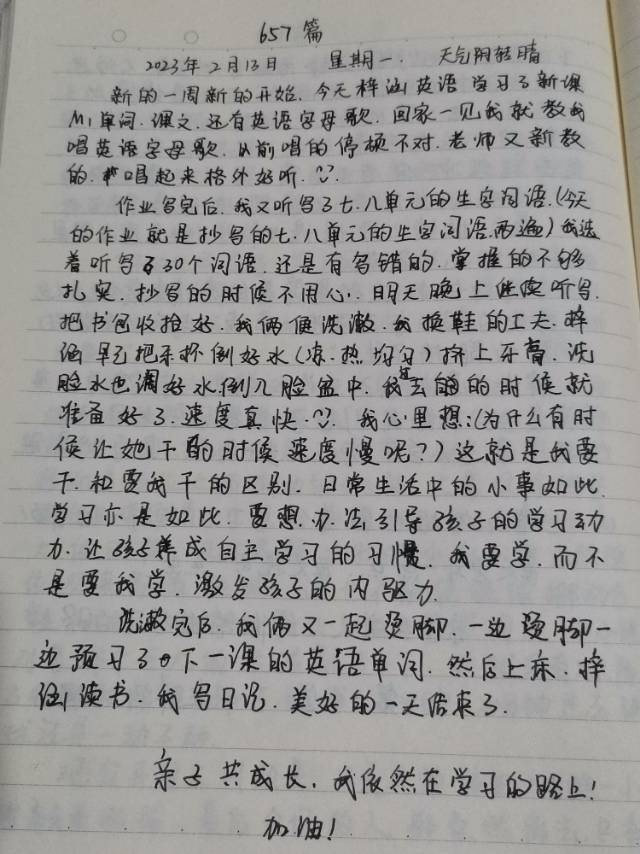 657篇
2023年2月13日 星期一. 天气阴转晴
新的一周新的开始. 今天梓涵英语学习了新课
M1单词. 课文. 还有英语字母歌. 回家一见我就教我
唱英语字母歌. 从前唱的停顿不对. 老师又新教
的. 唱起来格外好听.
作业写完后. 我又听写了七. 八单元的生字词语. (今天
的作业就是抄写的七. 八单元的生字词语. 两遍) 我选
着听写了30个词语. 还是有写错的. 掌握的不够
扎实. 抄写的时候不用心. 明天晚上继续听写.
把书包收拾好. 我俩便洗漱. 我换鞋的工夫. 梓
涵早已把杯杯倒好水 (凉. 热均匀) 挤上牙膏. 洗
脸水也调好水. 倒入脸盆中. 我过去的时候就
准备好了. 速度真快. 我心里想: (为什么有时
候让她干的时候速度慢呢?) 这就是我要
干. 和要我干的区别. 日常生活中的小事如此.
学习亦是如此. 要想办法引导孩子的学习动
力. 让孩子养成自主学习的习惯. 我要学. 而不
是要我学. 激发孩子的内驱力.
洗漱完后. 我俩又一起烫脚. 一边烫脚一
边预习了下一课的英语单词. 然后上床. 梓
涵读书. 我写日记. 美好的一天结束了.
亲子共成长. 我依然在学习的路上!
加油!